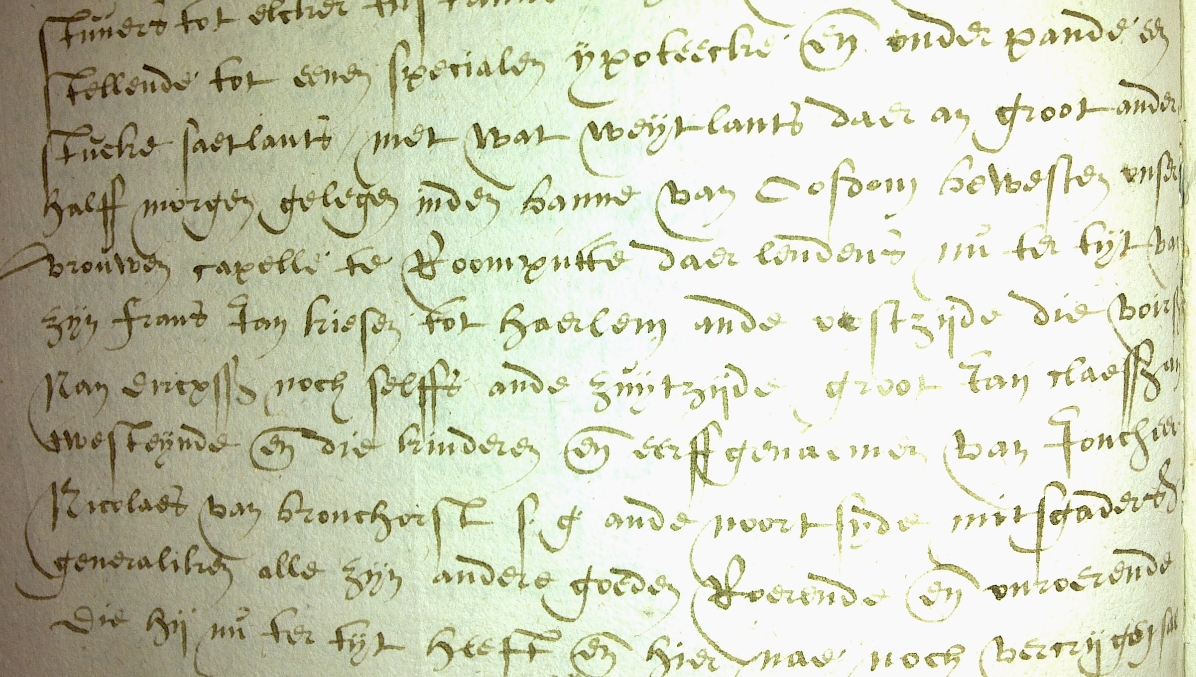 stuvers tot elcker
stellende tot eenen specialen ypoteecke en̄ onder pande een
stucke saetlants / met wat weytlants daer an groot ander
halff morgen gelegen inden banne van Oosdom bewesten onser
vrouwen capelle te Roomputte daer lendens nu ter tyt van
zyn frans Jan kiesen tot haerlem ande oostzyde die voirs
Nan dircxssz noch selffs ande zuytzyde groot Jan claessz an
twesteynde en̄ die kinderen en̄ eerffgenaemen van Joncheer
Nicolaes van bronchorst s. g ande noortsyde mitsgaders
generaliken alle zyn andere goeden Roerende en̄ onroerende
die hij nu ter tyt heeft en̄ hier nae noch vercrijgen sal